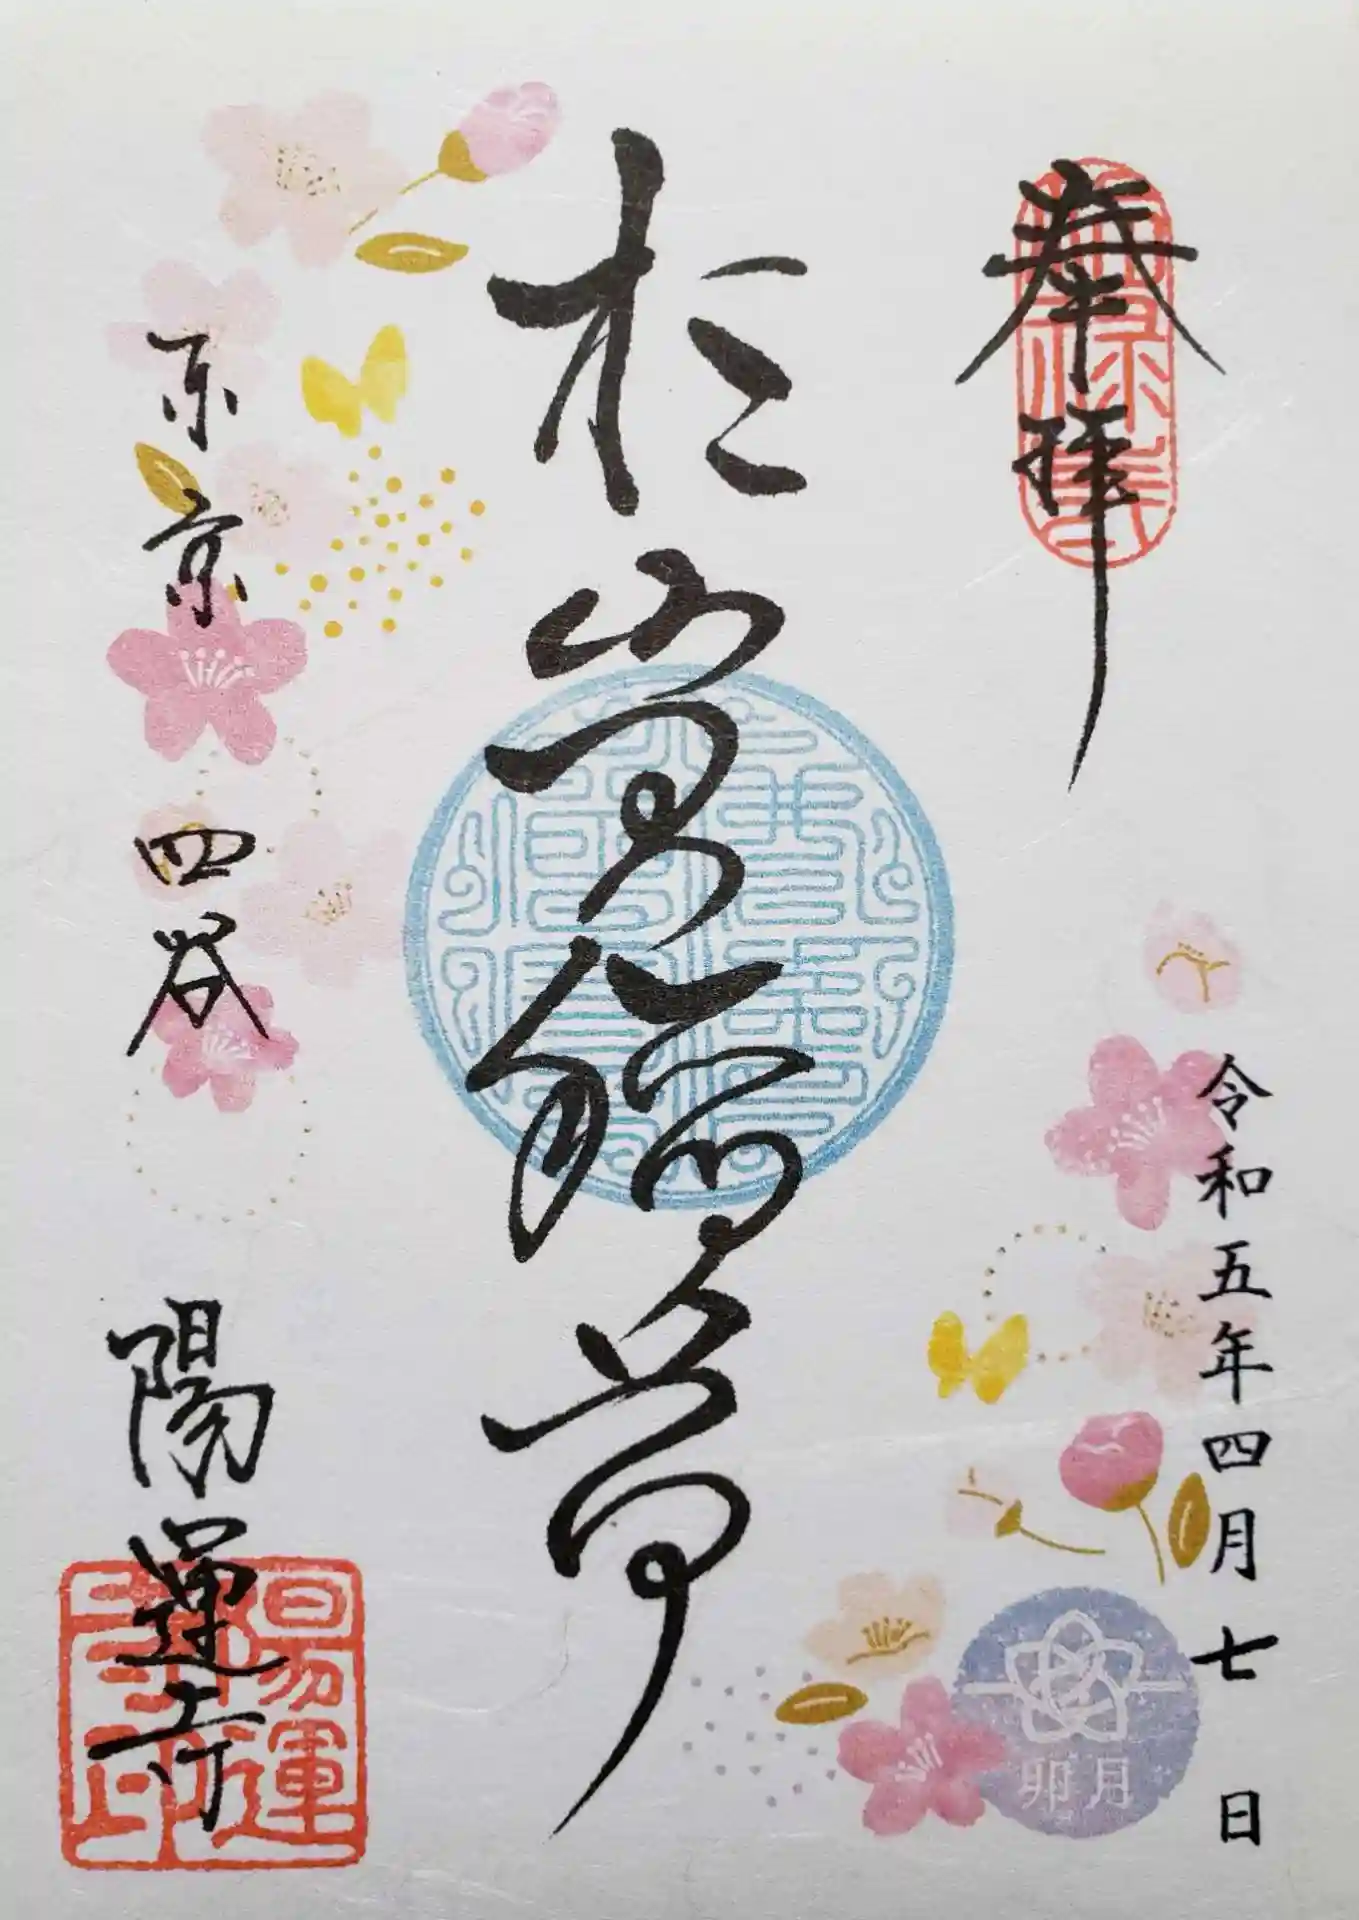 奉拝
令和五年四月七日
卯月
於岩稲荷
東京四谷
陽運寺
陽運
寺印